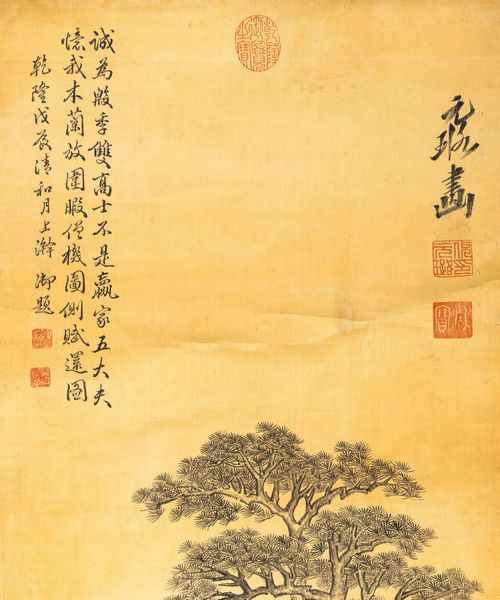 誠為殷季雙高士不是嬴家五大夫
憶我木蘭放圍暇僧機圖側賦還圖
乾隆戊辰清和月上澣 御題
乾隆御覽之寶
畫